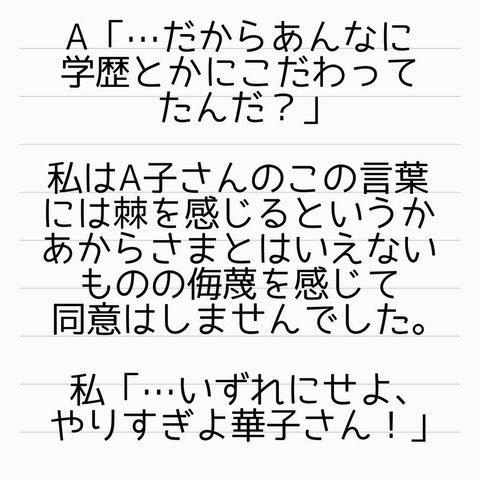 A「…だからあんなに
学歴とかにこだわって
たんだ？」
私はA子さんのこの言葉
には棘を感じるというか
あからさまとはいえない
ものの侮蔑を感じて
同意はしませんでした。
私「…いずれにせよ、
やりすぎよ華子さん！」